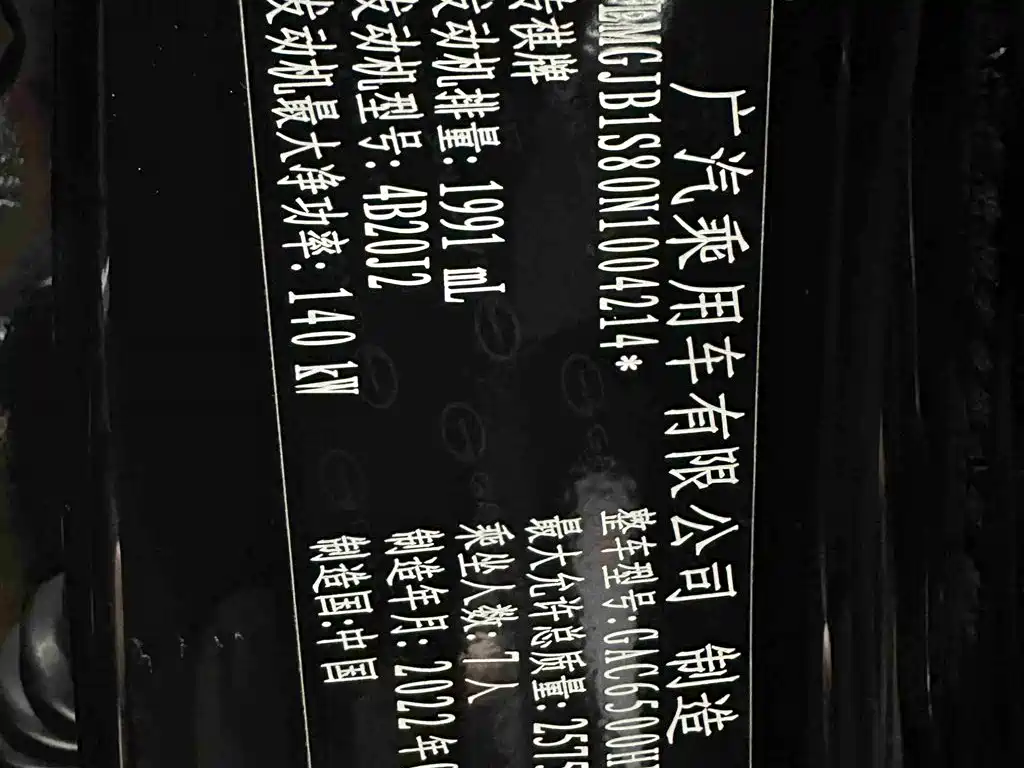 广汽乘用车有限公司 制造
BMGJB1S80N1004214*
整车型号:GAC6500H
棋牌
最大允许总质量:2575
发动机排量:1991 mL
乘坐人数:7人
发动机型号:4B20J2
制造年月:2022年
发动机最大净功率:140 kW
制造国:中国